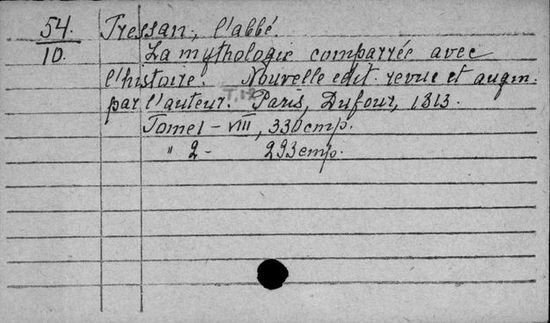 54. Tressan, l'abbé
10. La mythologie comparrée avec
l'histoire. Nouvelle edit. revue et augm.
par l'auteur. Paris, Dufour, 1813.
Tome 1 - VIII, 330 стр.
" 2 - 293 стр.